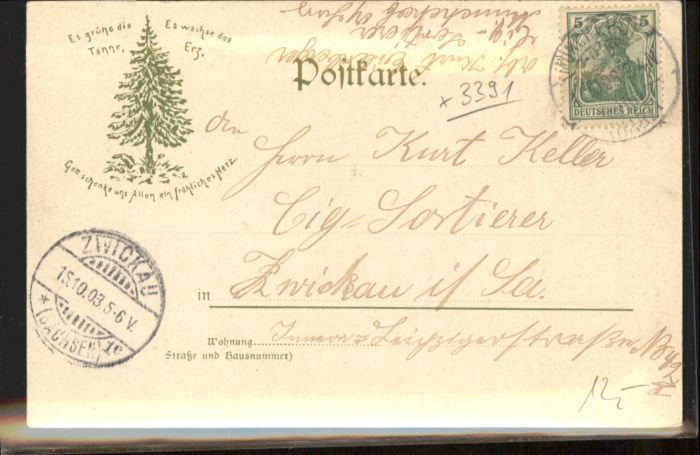 Es grüne die Tanne,
Es wachse das Erz,
Gott schenke uns Allen ein fröhliches Herz
Postkarte.
5 5
DEUTSCHES REICH
Abs. Kurt
Cig.-Sortierer
× 3391
An
Herrn Kurt Keller
Cig.-Sortierer
in Zwickau i/Sa.
Wohnung Innere Leipzigerstraße No 42
(Straße und Hausnummer)
ZWICKAU
15.10.03. 5-6 V.
* (SACHSEN) 1e
12,-